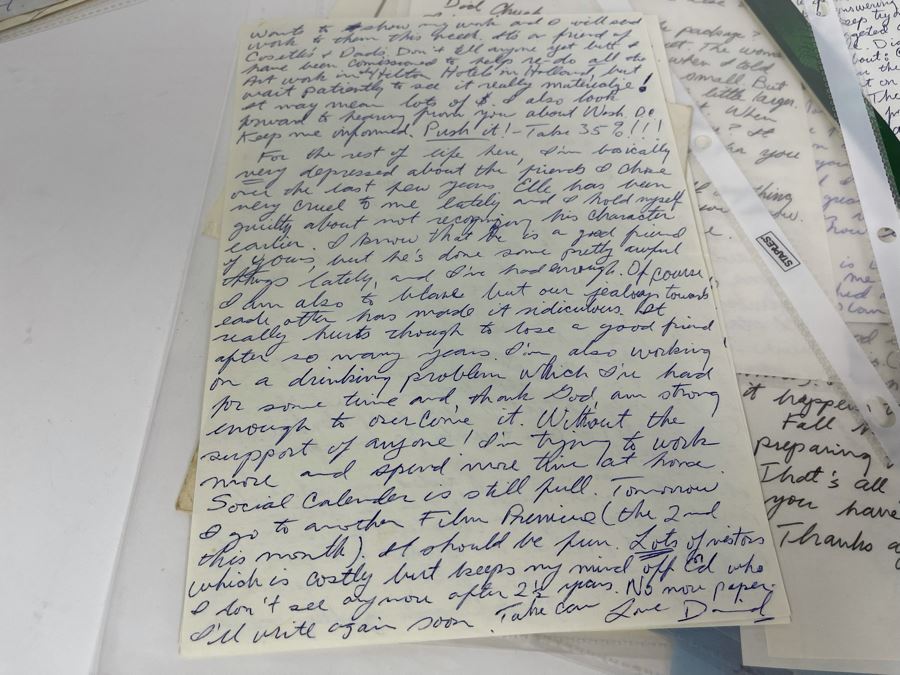 Wants to show my work and I will send
work to them this week. Its a friend of
Cosetti's & Dads. Don't tell anyone yet but I
have been Comissioned to help re-do all the
Art work in the Hilton Hotels in Holland, but
wait patiently to see it really materialize!
It may mean lots of $. I also look
forward to hearing from you about Wash. D.C.
Keep me informed. Push it! - Take 35%!!!
For the rest of life here, I'm basically
very depressed about the friends I chose
over the last few years. Elle has been
very cruel to me lately and I hold myself
guilty about not recognizing his character
earlier. I know that he is a good friend
of yours, but he's done some pretty awful
things lately, and I've had enough. Of course,
I am also to blame but our jealousy towards
each other has made it ridiculous. It
really hurts though to lose a good friend
after so many years. I'm also working
on a drinking problem which I've had
for some time and thank God, am strong
enough to overcome it. Without the
support of anyone! I'm trying to work
more and spend more time at home.
Social Calender is still full. Tomorrow
I go to another Film Premiere (the 2nd
this month). It should be fun. Lots of visitors
which is costly but keeps my mind off Ed who
I don't see anymore after 2½ years. No more paper.
I'll write again soon. Take care Love David
Dad Check
package?
The women
when I told
small But
little larger.
When
? It
you
thing
STAPLES
it happen
Fall
preparing
That's all
you have
Thanks
answering
keep